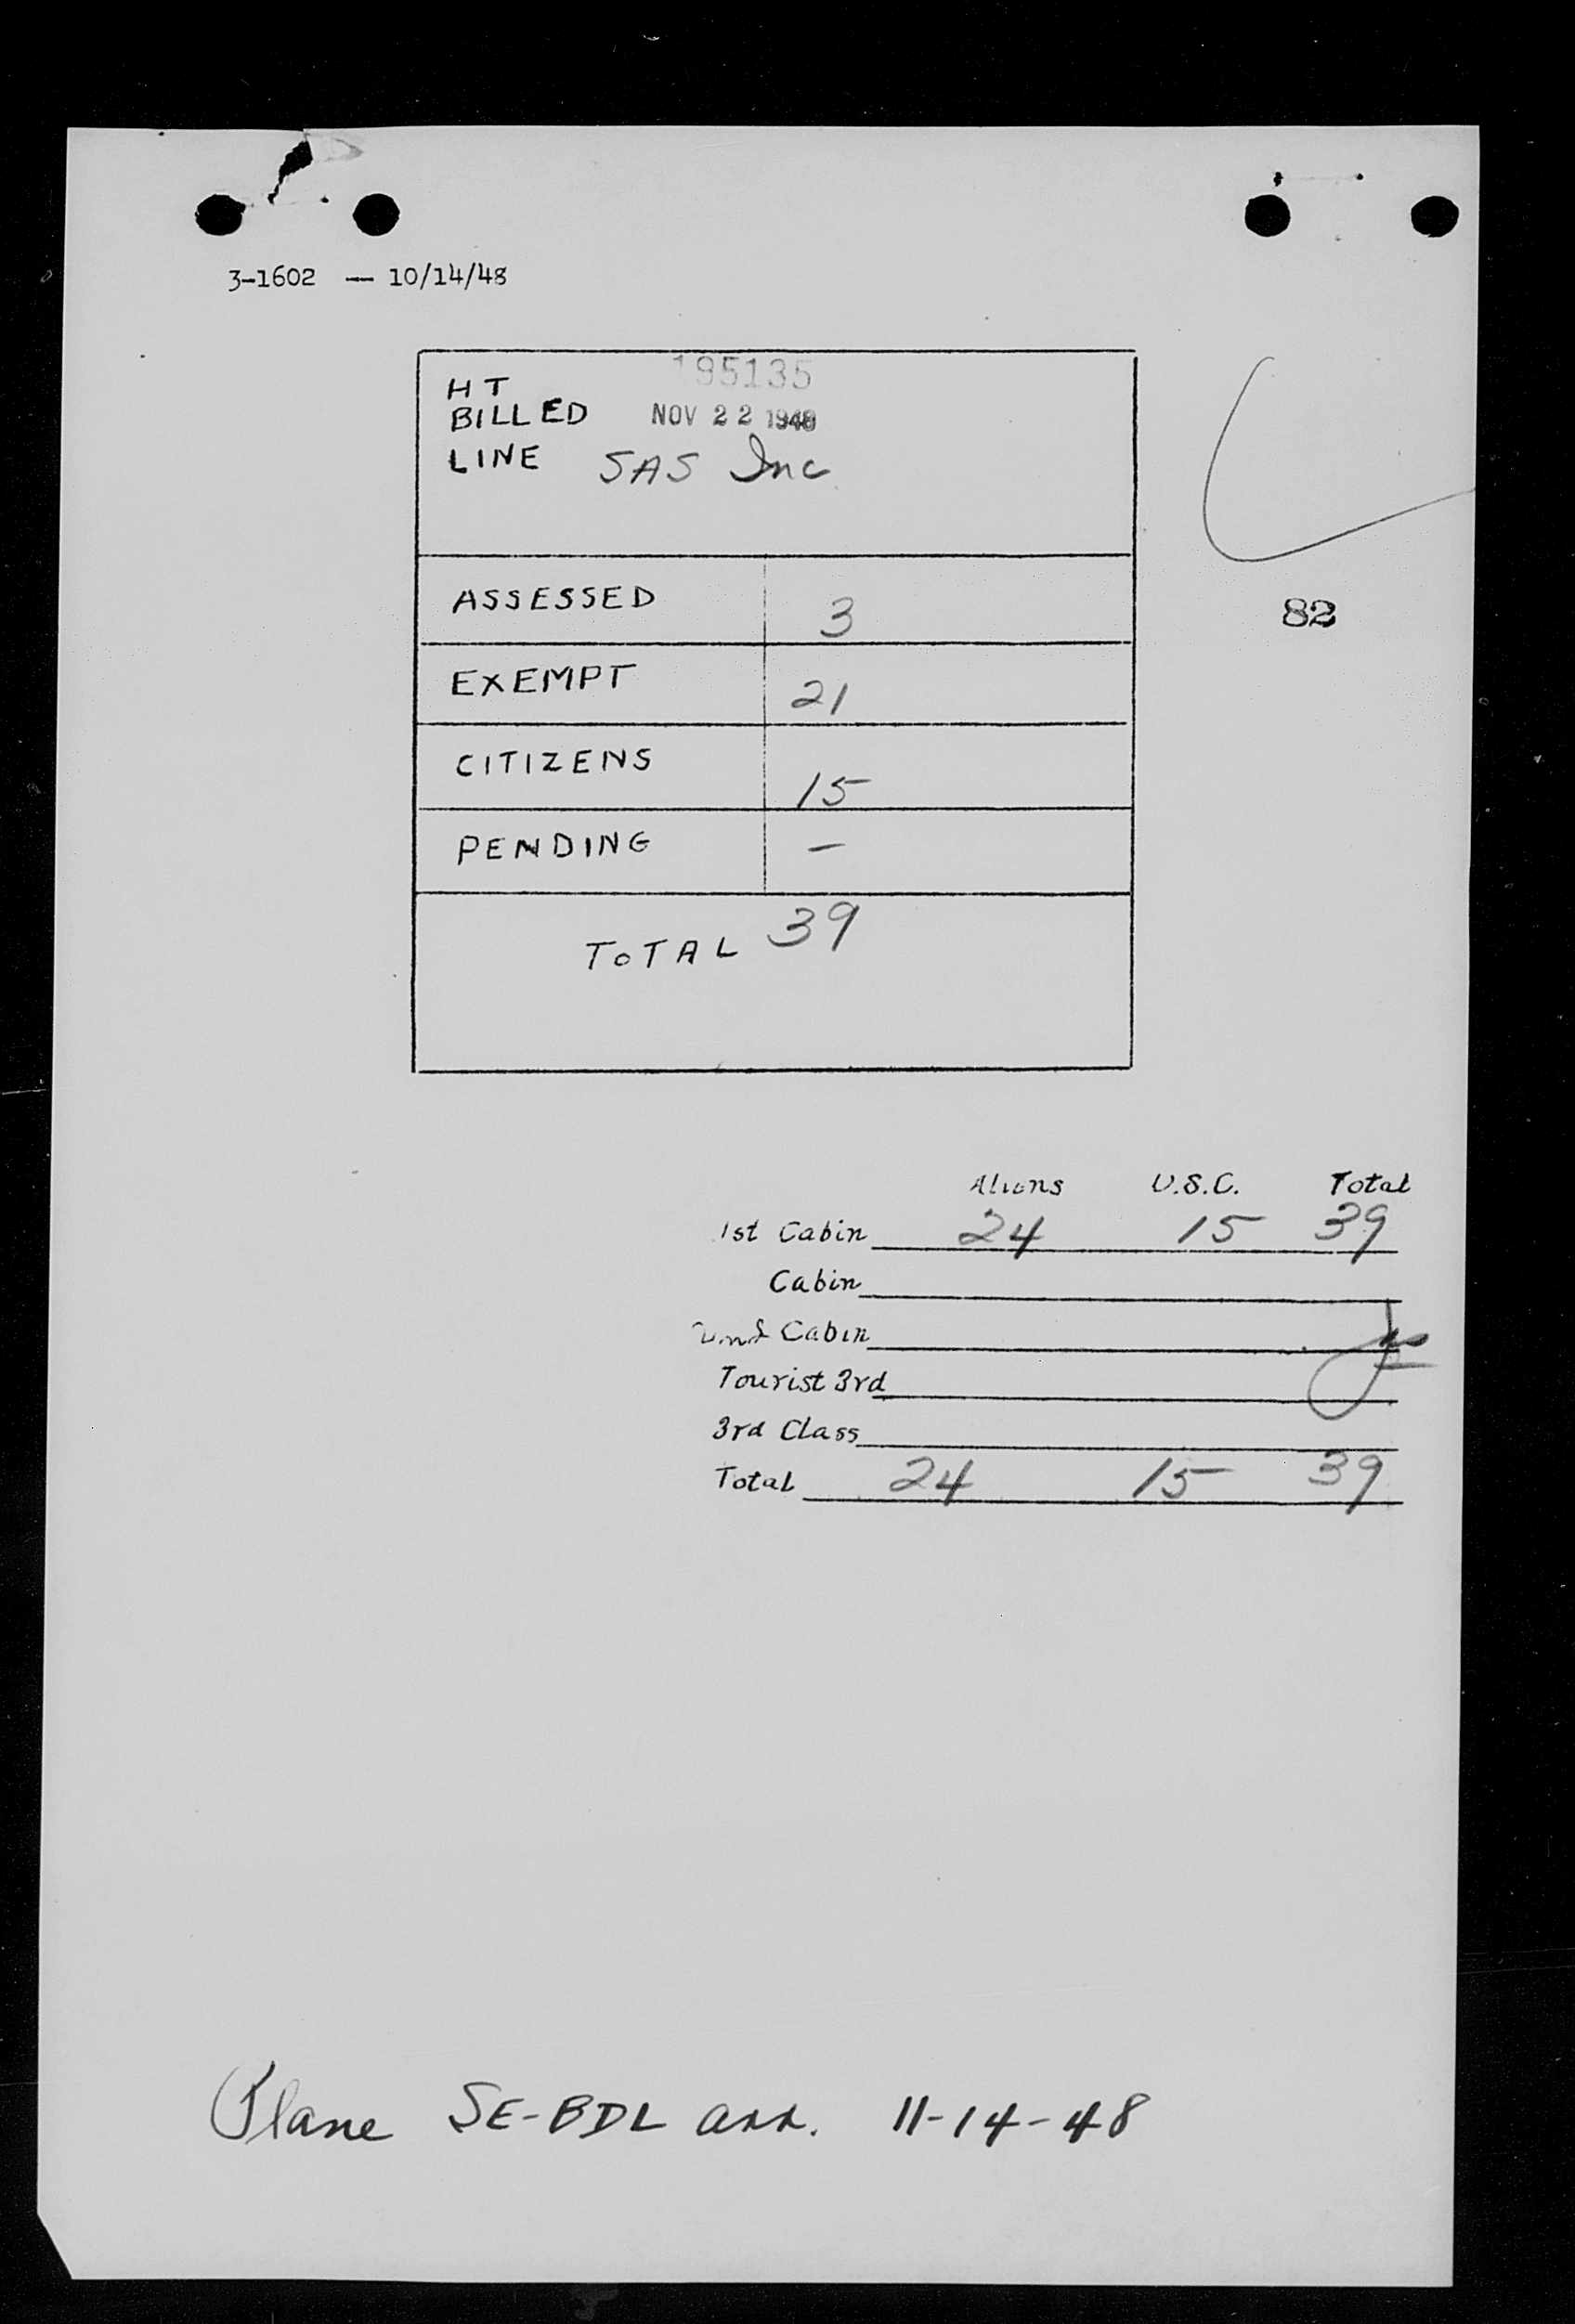 3-1602 — 10/14/48
195135
HT
BILLED NOV 22 1948
LINE SAS Inc
ASSESSED 3
82
EXEMPT 21
CITIZENS 15
PENDING —
TOTAL 39
Aliens U.S.C. Total
1st Cabin 24 15 39
Cabin
2nd Cabin
Tourist 3rd
3rd Class
Total 24 15 39
Plane SE-BDL arr. 11-14-48